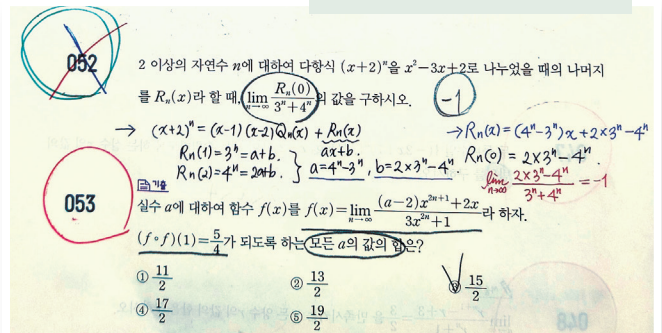 052
2 이상의 자연수 n에 대하여 다항식 (x+2)ⁿ을 x²-3x+2로 나누었을 때의 나머지
를 Rₙ(x)라 할 때, lim n→∞ Rₙ(0)/(3ⁿ+4ⁿ)의 값을 구하시오. -1
→ (x+2)ⁿ = (x-1)(x-2)Qₙ(x) + Rₙ(x)
ax+b.
Rₙ(1)=3ⁿ=a+b.
Rₙ(2)=4ⁿ=2a+b.
} a=4ⁿ-3ⁿ, b=2×3ⁿ-4ⁿ
→Rₙ(x)=(4ⁿ-3ⁿ)x+2×3ⁿ-4ⁿ
Rₙ(0)=2×3ⁿ-4ⁿ.
lim n→∞ (2×3ⁿ-4ⁿ)/(3ⁿ+4ⁿ) = -1
기출
053
실수 a에 대하여 함수 f(x)를 f(x)=lim n→∞ ((a-2)x²ⁿ⁺¹+2x)/(3x²ⁿ+1)라 하자.
(f∘f)(1)=5/4가 되도록 하는 모든 a의 값의 합은?
① 11/2 ② 13/2 ③ 15/2
④ 17/2 ⑤ 19/2